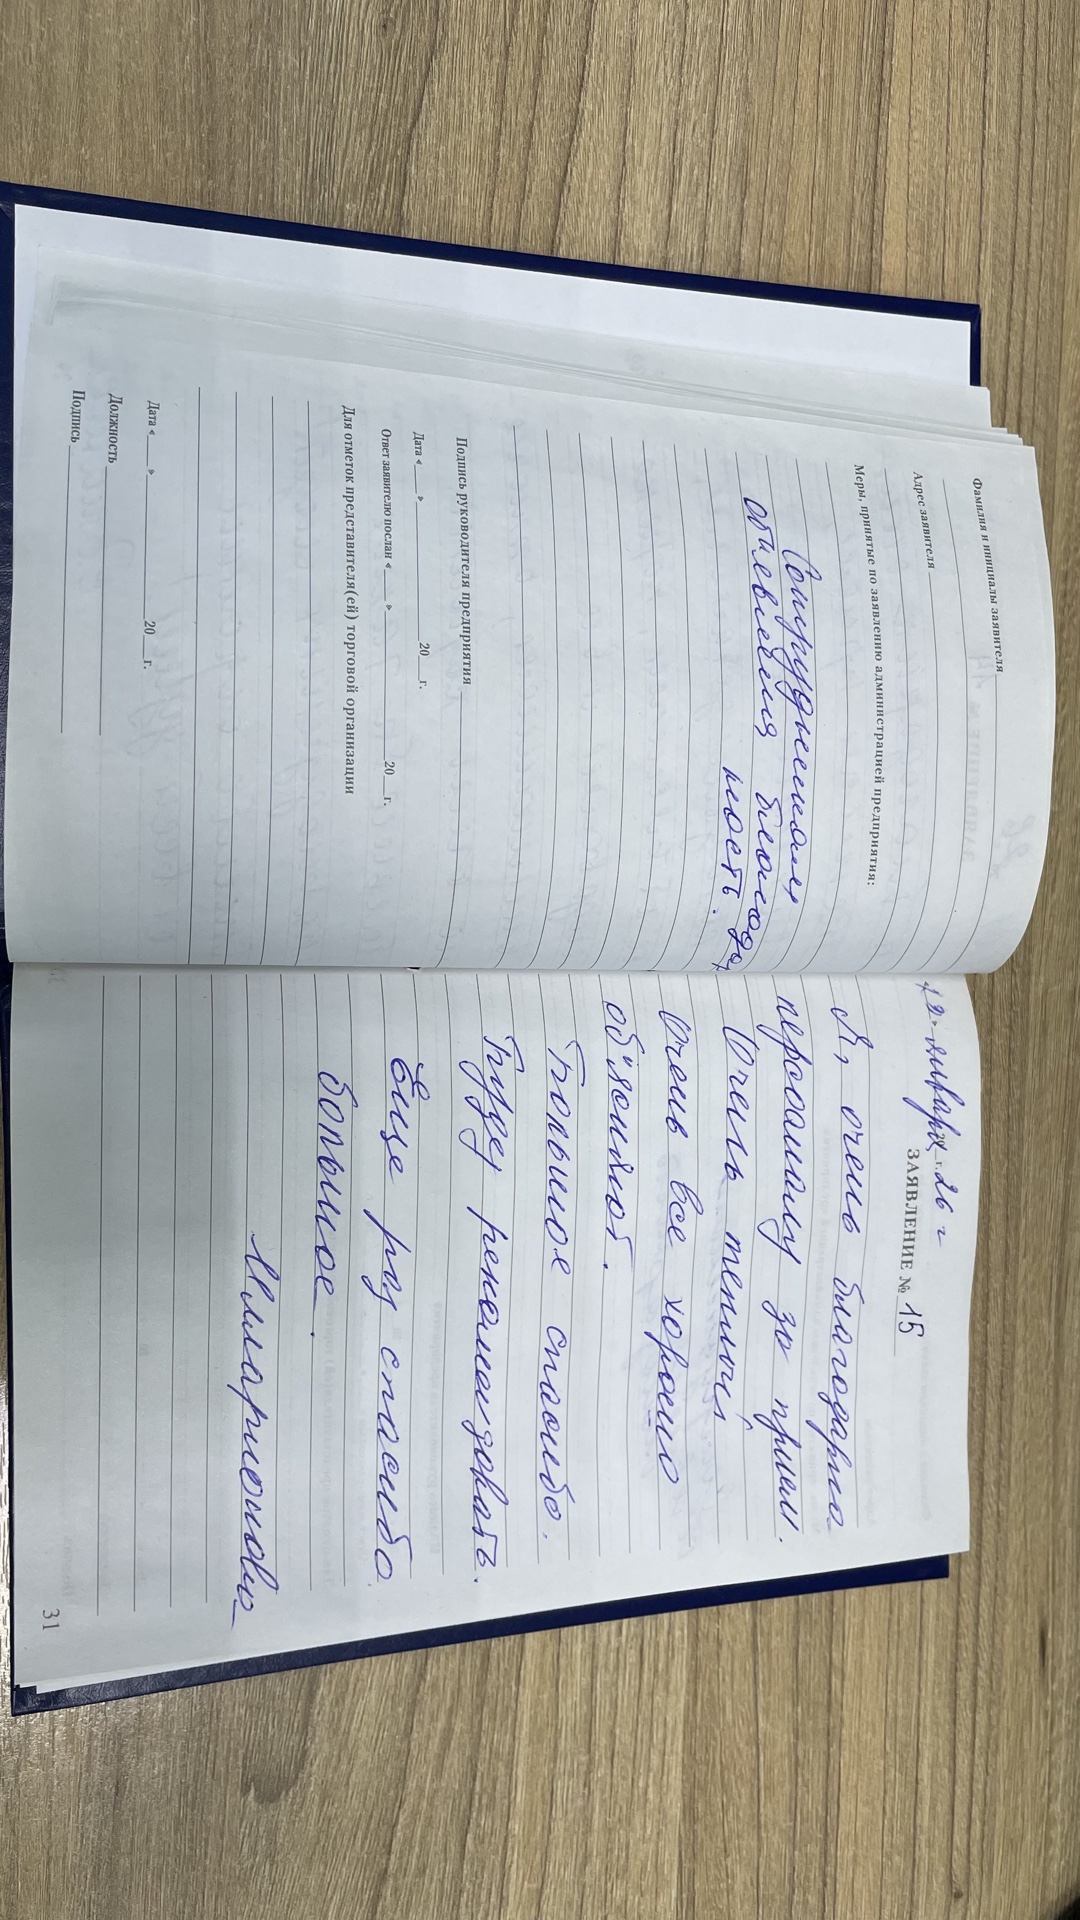 Фамилия и инициалы заявителя
Адрес заявителя
Меры, принятые по заявлению администрацией предприятия:
Сотрудникам
объявлена благодар
ность.
Подпись руководителя предприятия
Дата « » 20 г.
Ответ заявителю послан « » 20 г.
Для отметок представителя(ей) торговой организации
Дата « » 20 г.
Должность
Подпись
января 26 г
ЗАЯВЛЕНИЕ № 15
Я, очень благодарна
персоналу за прием.
Очень теплый
Очень все хорошо
об"ясняют.
Большое спасибо.
Буду рекомендовать.
Еще раз спасибо
большое.
31